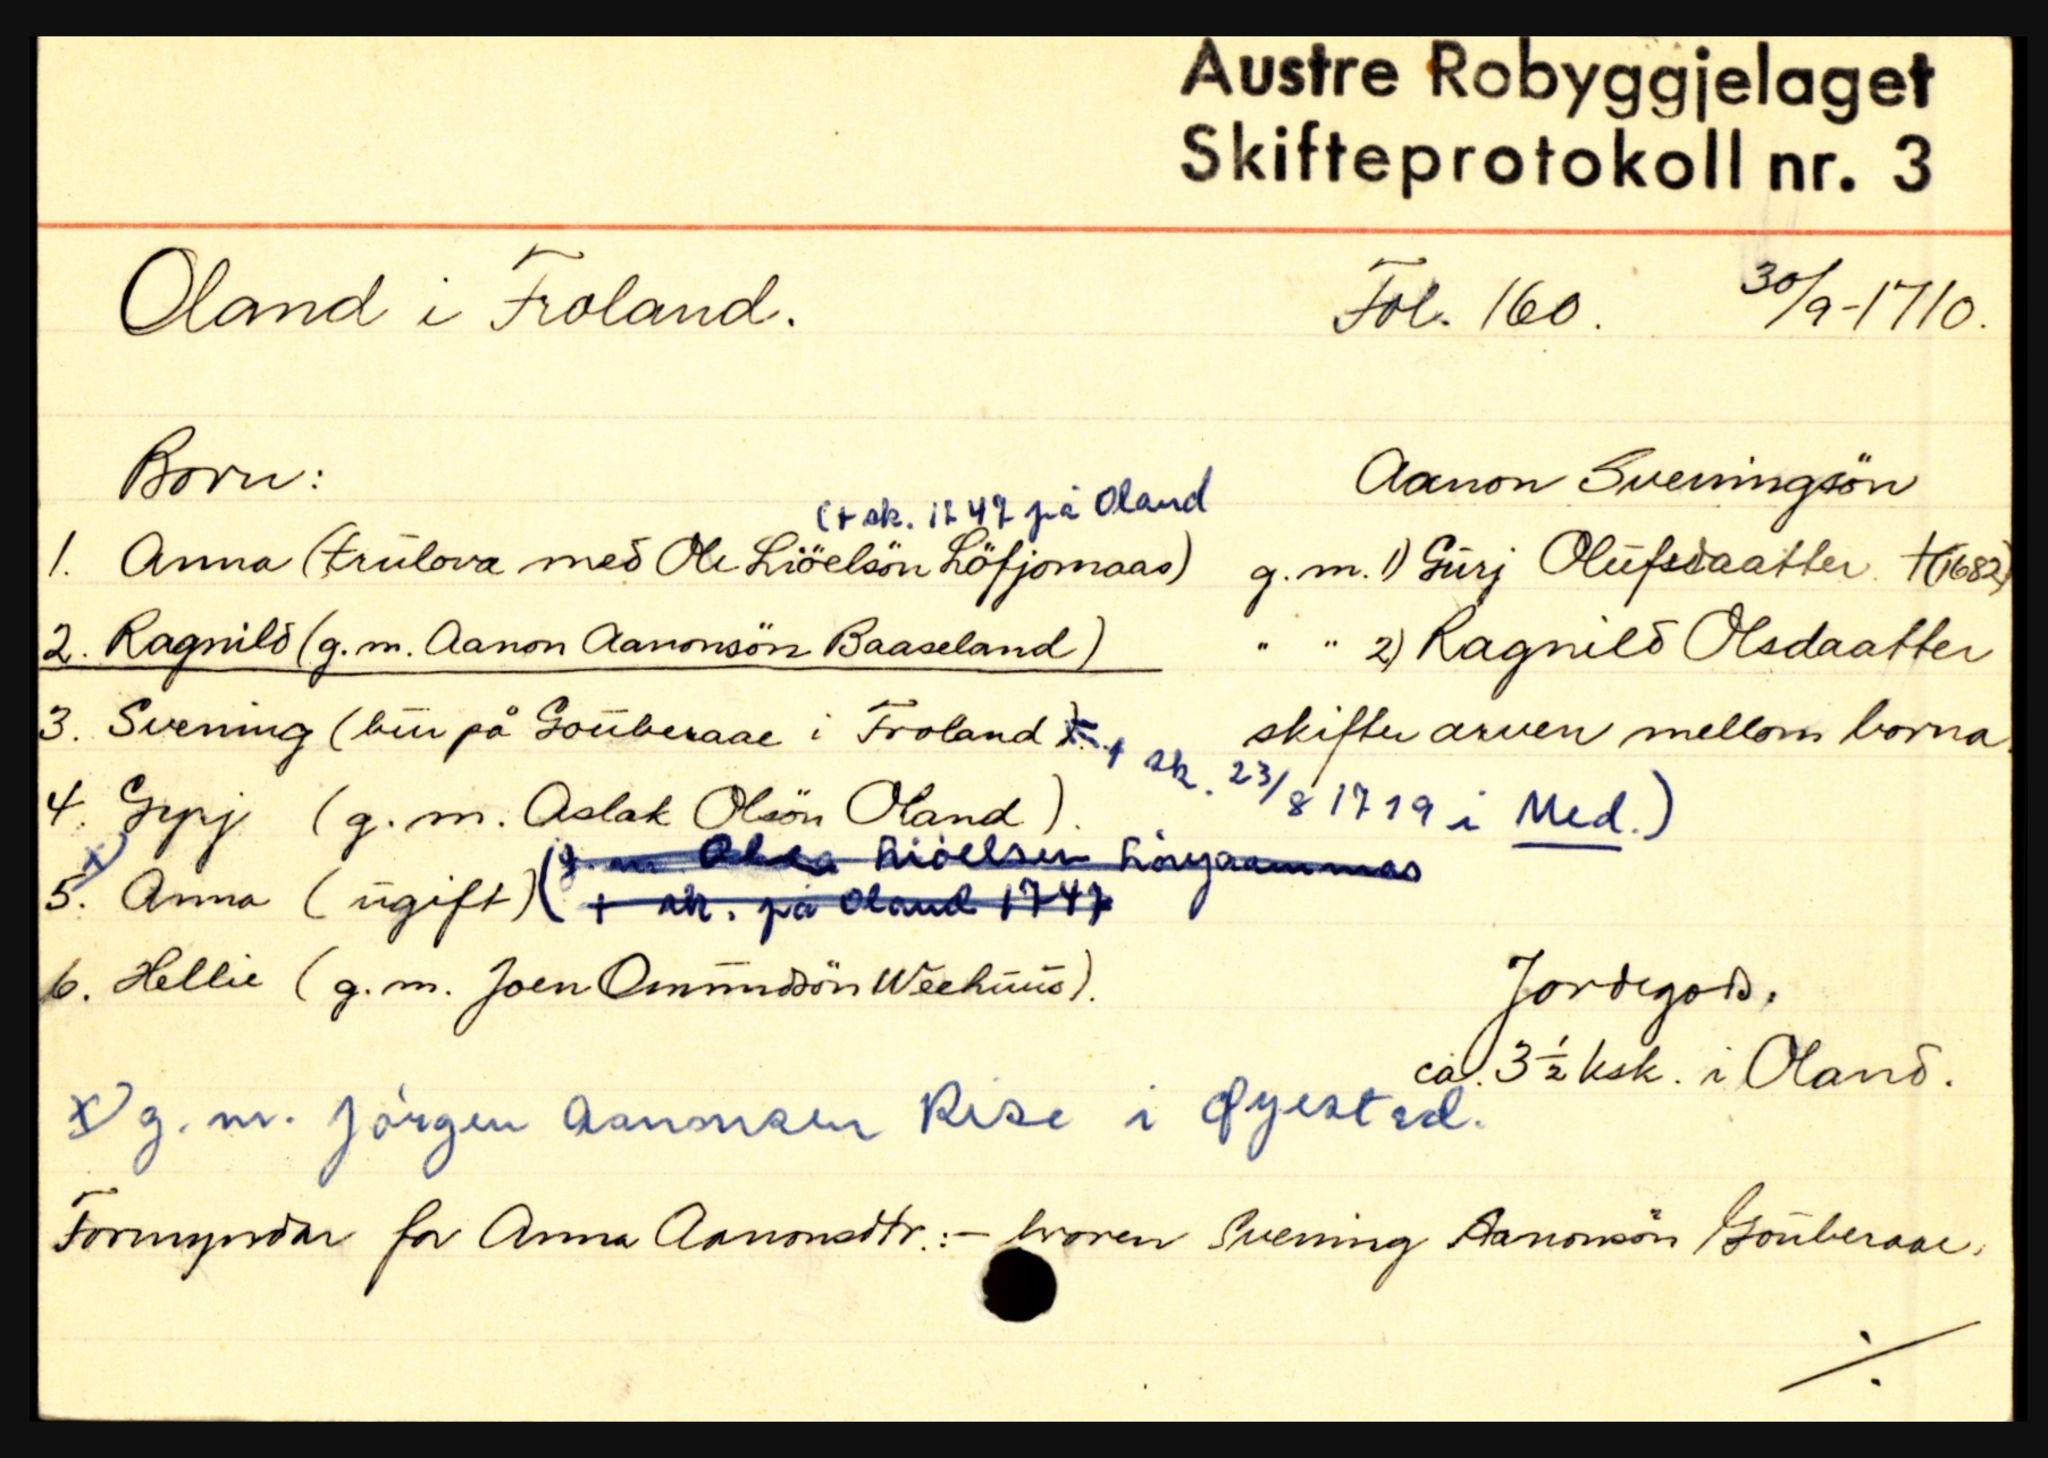 Austre Robyggjelaget
Skifteprotokoll nr. 3
Oland i Froland. Fol. 160. 30/9-1710.
Born:
Aanon Sveningsön
(+ sk. 1747 på Oland
1. Anna (trulova med Ole Liöelsön Löfjomaas)
g. m. 1) Gurj Olufsdaatter †(1682)
2. Ragnild (g. m. Aanon Aanonsön Baaseland)
" " 2) Ragnild Olsdaatter
3. Svening (bur på Gouberaae i Froland)
skifter arven mellom borna.
+ sk. 23/8 1719 i Med.)
4. Gyrj (g. m. Aslak Olsön Oland).
(g. m. Liöelsen
x)
5. Anna (ugift) + sk. på Oland 1747
6. Hellie (g. m. Joen Omundsön Weehuus).
Jordegods.
ca. 3 1/2 ksk. i Oland.
x) g. m. Jörgen Aanonsen Rise i Øyestad.
Formyndar for Anna Aanonsdtr.:- broren Svening Aanonsön Gouberaae.
./.